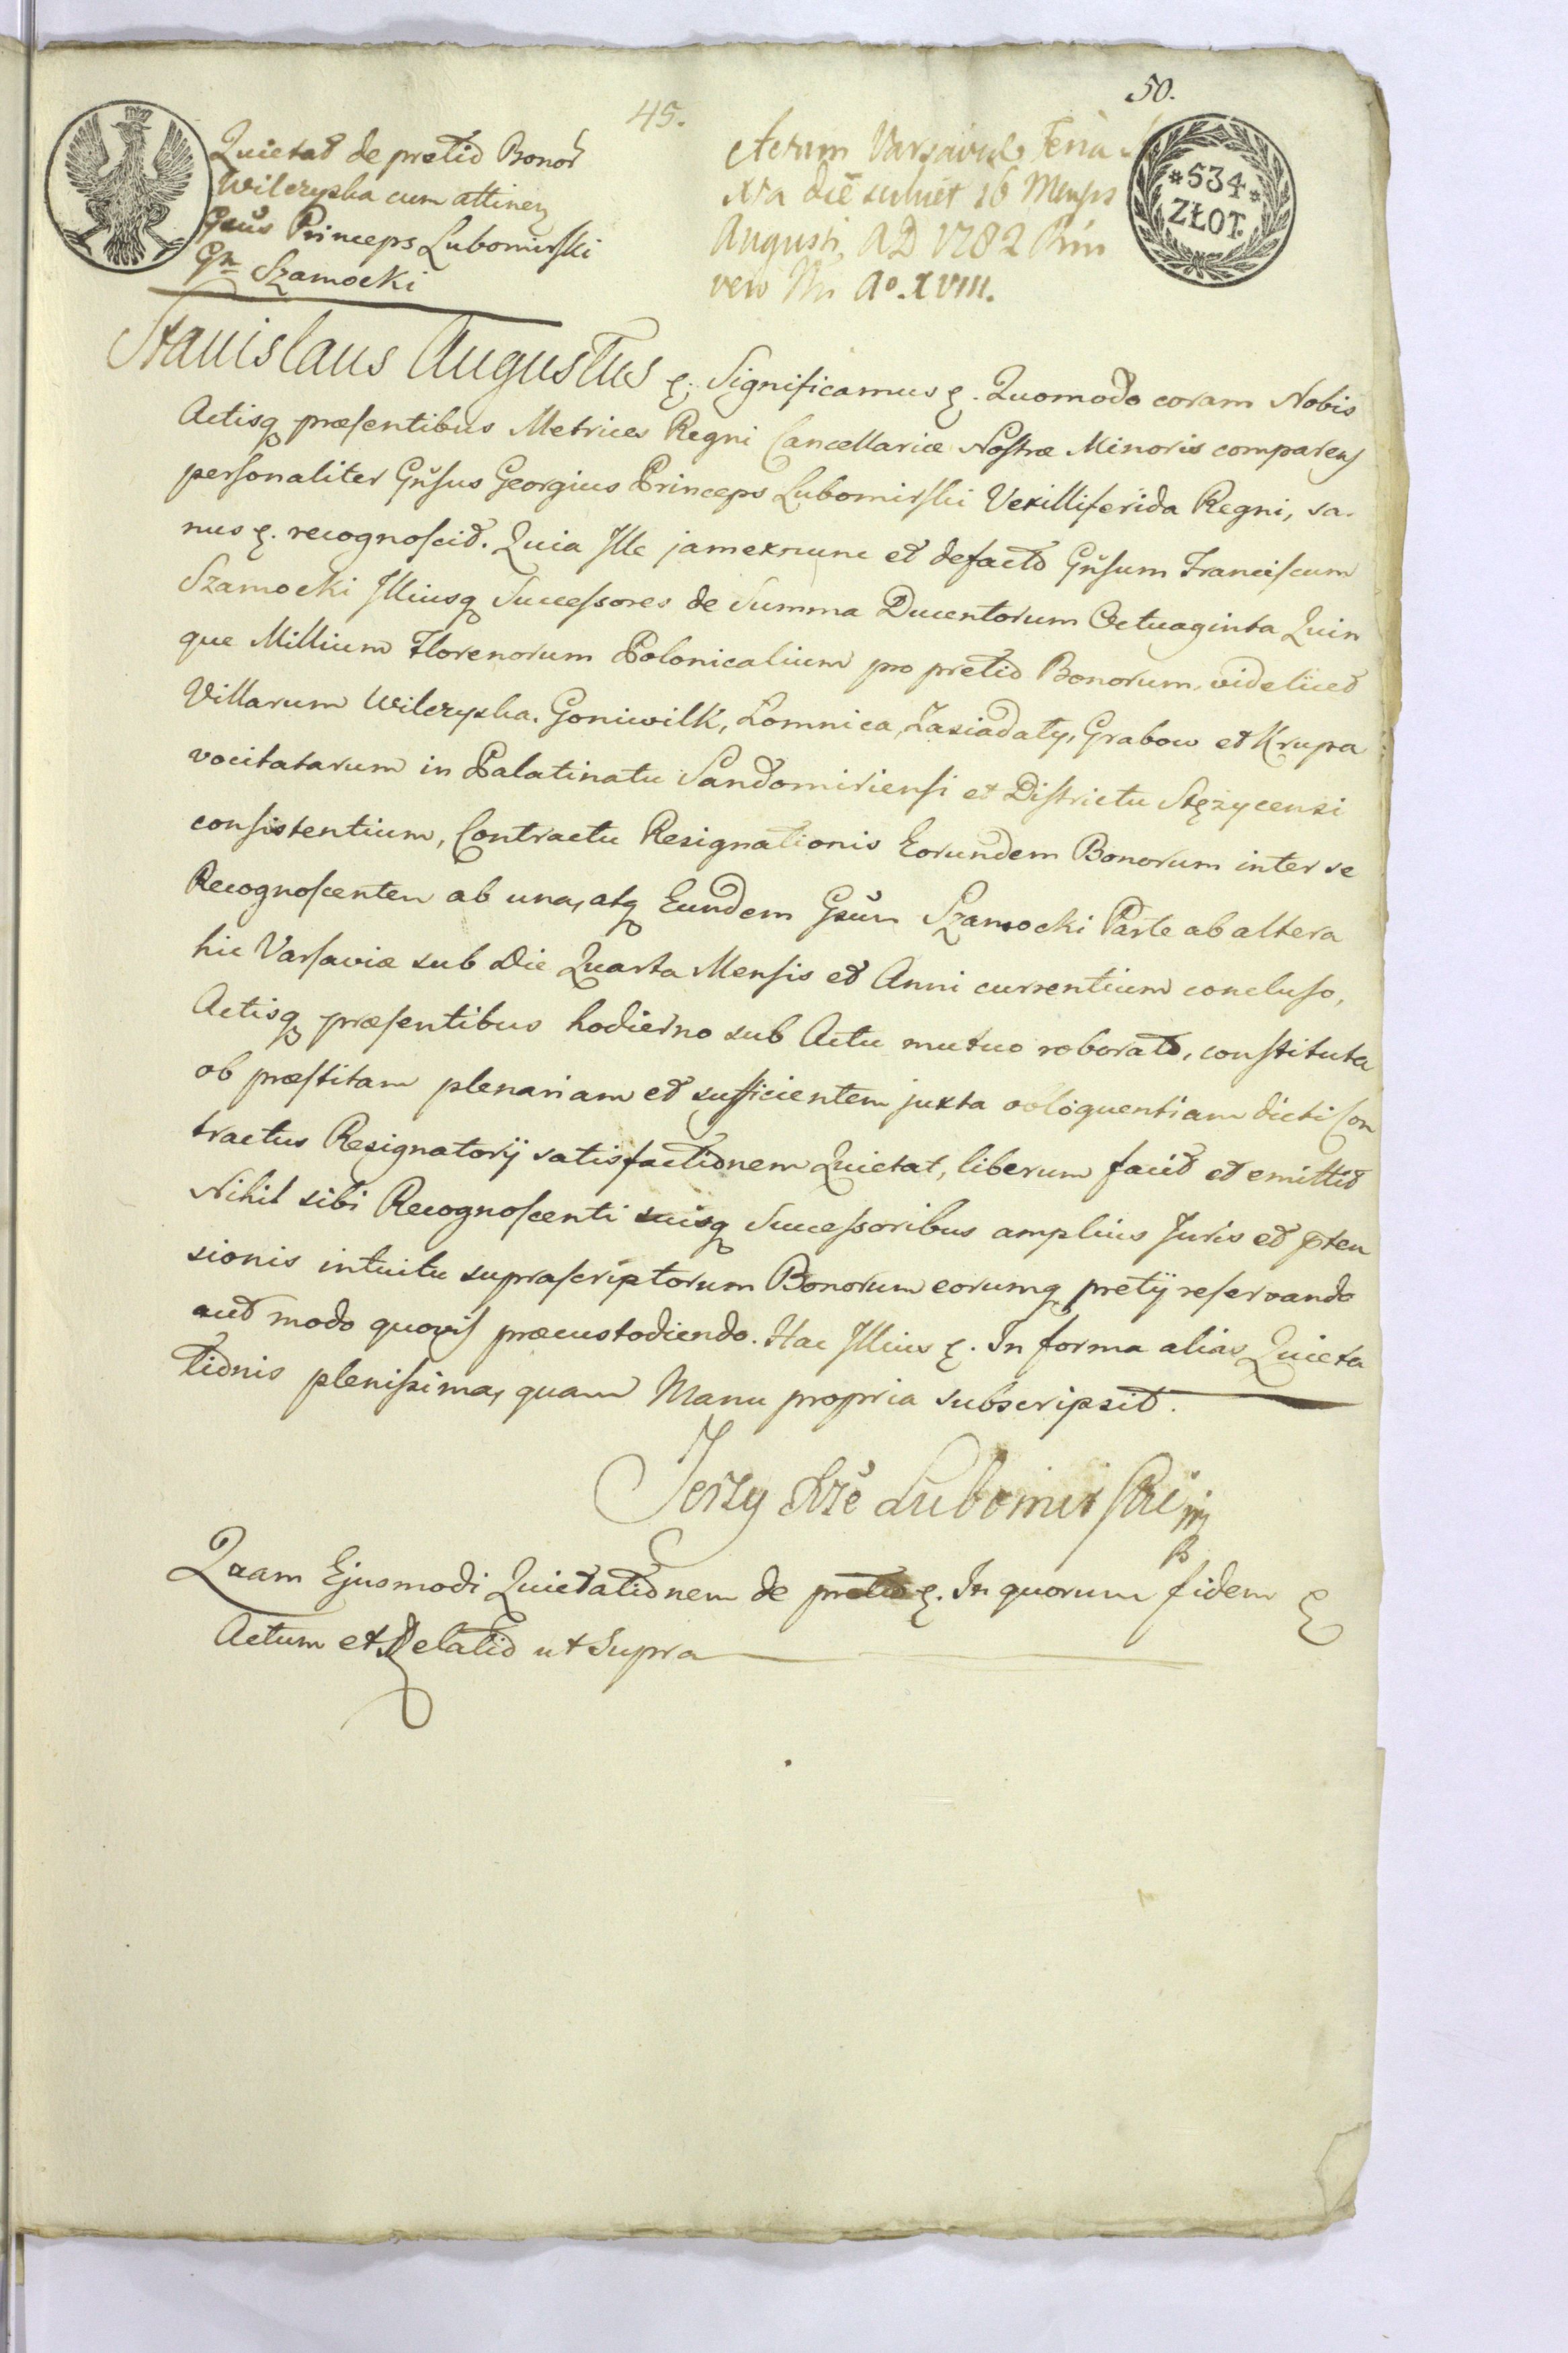 50.
45.
Quietat de pretio Bonor̃
Wilczyska cum attinen
Gsũs Princeps Lubomirſki
Gn̄ Szamocki
Actum Varsaviæ Feria
xta die scilicet 16 Mensis
Augusti, AD 1782
vero Nri Aº. XVIII.
*534*
ZŁOT.
Stanislaus Augustus &. Significamus &. Quomodo coram Nobis
Actisq præſentibus Metrices Regni Cancellariæ Noſtræ Minoris comparens
perſonaliter Gñſus Georgius Princeps Lubomirſki Vexilliferida Regni, sa-
nus &. recognoſcit. Quia Ille jamexnunc et defacto Gñſum Franciſcum
Szamocki Illiusq Succeſsores de Summa Ducentorum Octuaginta Quin
que Millium Florenorum Polonicalium pro pretio Bonorum, videlicet
Villarum Wilczyska, Goniwilk, Łomnica, Zasiadały, Grabow et Krupa
vocitatarum in Palatinatu Sandomirienſi et Diſtrictu Stęzycensi
conſistentium, Contractu Resignationis Eorundem Bonorum inter se
Recognoſcenten ab una, atq Eundem Gsũm Szamocki Parte ab altera
hic Varſaviæ sub Die Quarta Menſis et Anni currentium concluſo,
Actisq præſentibus hodierno sub Actu mutuo roborato, conſtituta
ob præſtitam plenariam et sufficientem juxta obloquentiam dicti Con
tractus Resignatorij satisfactionem Quietat, liberum facit et emittit
Nihil sibi Recognoſcenti suisq Succeſsoribus amplius Juris et ꝓten
sionis intuitu supraſcriptorum Bonorum eorumq pretij reſervando
aut modo quovis præcustodiendo. Hac Illius &. In forma alias Quieta
tionis pleniſsima, quam Manu propria subscripsit.
Jerzy Xże Lubomirſki mp
Quam Ejusmodi Quietationem de pretio &. In quorum fidem &
Actum et Relatio ut Supra